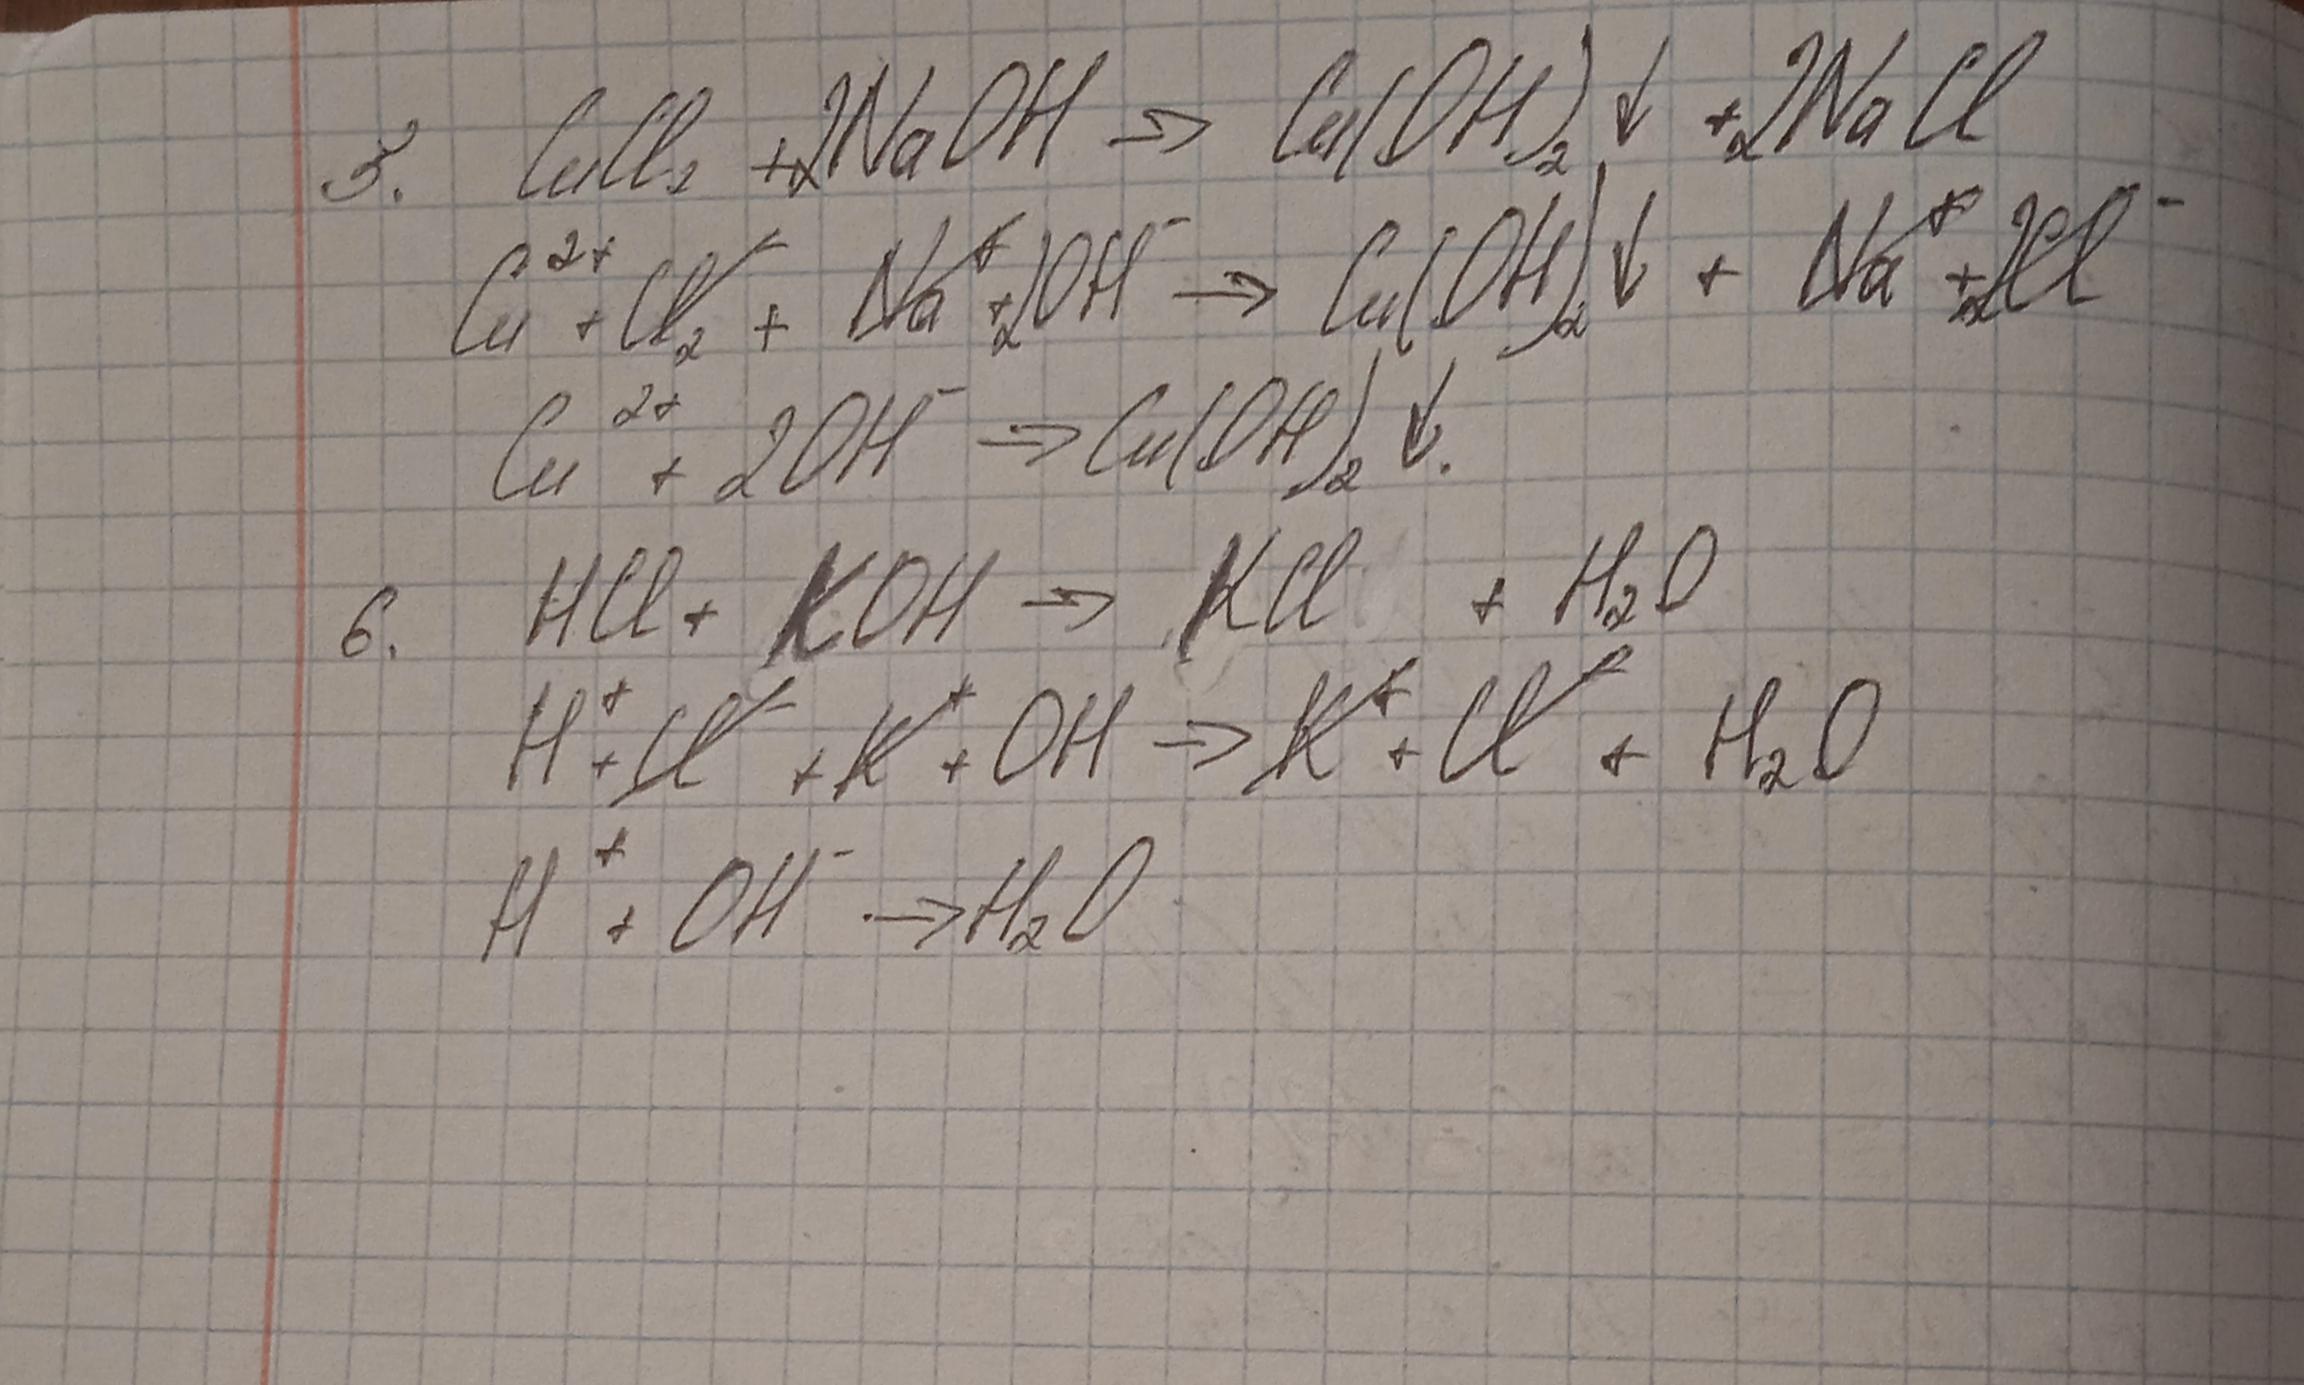 5. CuCl₂ + 2NaOH → Cu(OH)₂↓ + 2NaCl
Cu²⁺ + Cl₂⁻ + Na⁺ + 2OH⁻ → Cu(OH)₂↓ + Na⁺ + 2Cl⁻
Cu²⁺ + 2OH⁻ → Cu(OH)₂↓.
6. HCl + KOH → KCl + H₂O
H⁺ + Cl⁻ + K⁺ + OH → K⁺ + Cl⁻ + H₂O
H⁺ + OH⁻ → H₂O